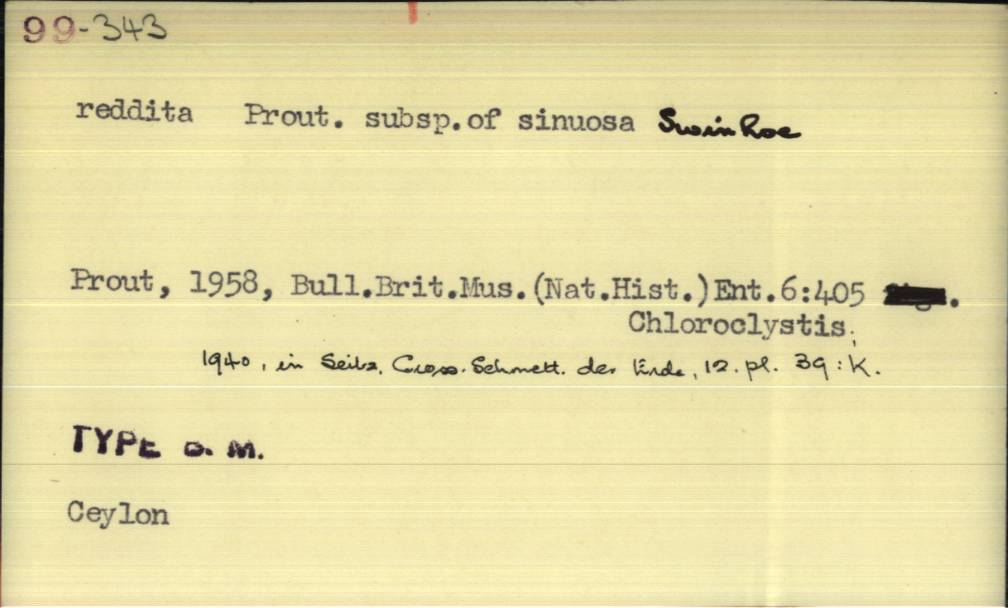 99-343
reddita Prout. subsp.of sinuosa Swinhoe
Prout, 1958, Bull.Brit.Mus.(Nat.Hist.)Ent.6:405 .
Chloroclystis;
1940, in Seitz, Gross. Schmett. der Erde, 12. pl. 39:k.
TYPE B. M.
Ceylon